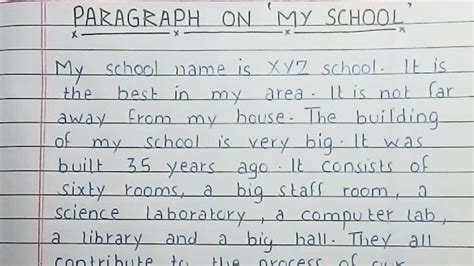 PARAGRAPH ON 'MY SCHOOL'
My school name is XYZ school. It is
the best in my area. It is not far
away from my house. The building
of my school is very big. It was
built 35 years ago. It consists of
sixty rooms, a big staff room, a
science laboratory, a computer lab,
a library and a big hall. They all
contribute to the process of our